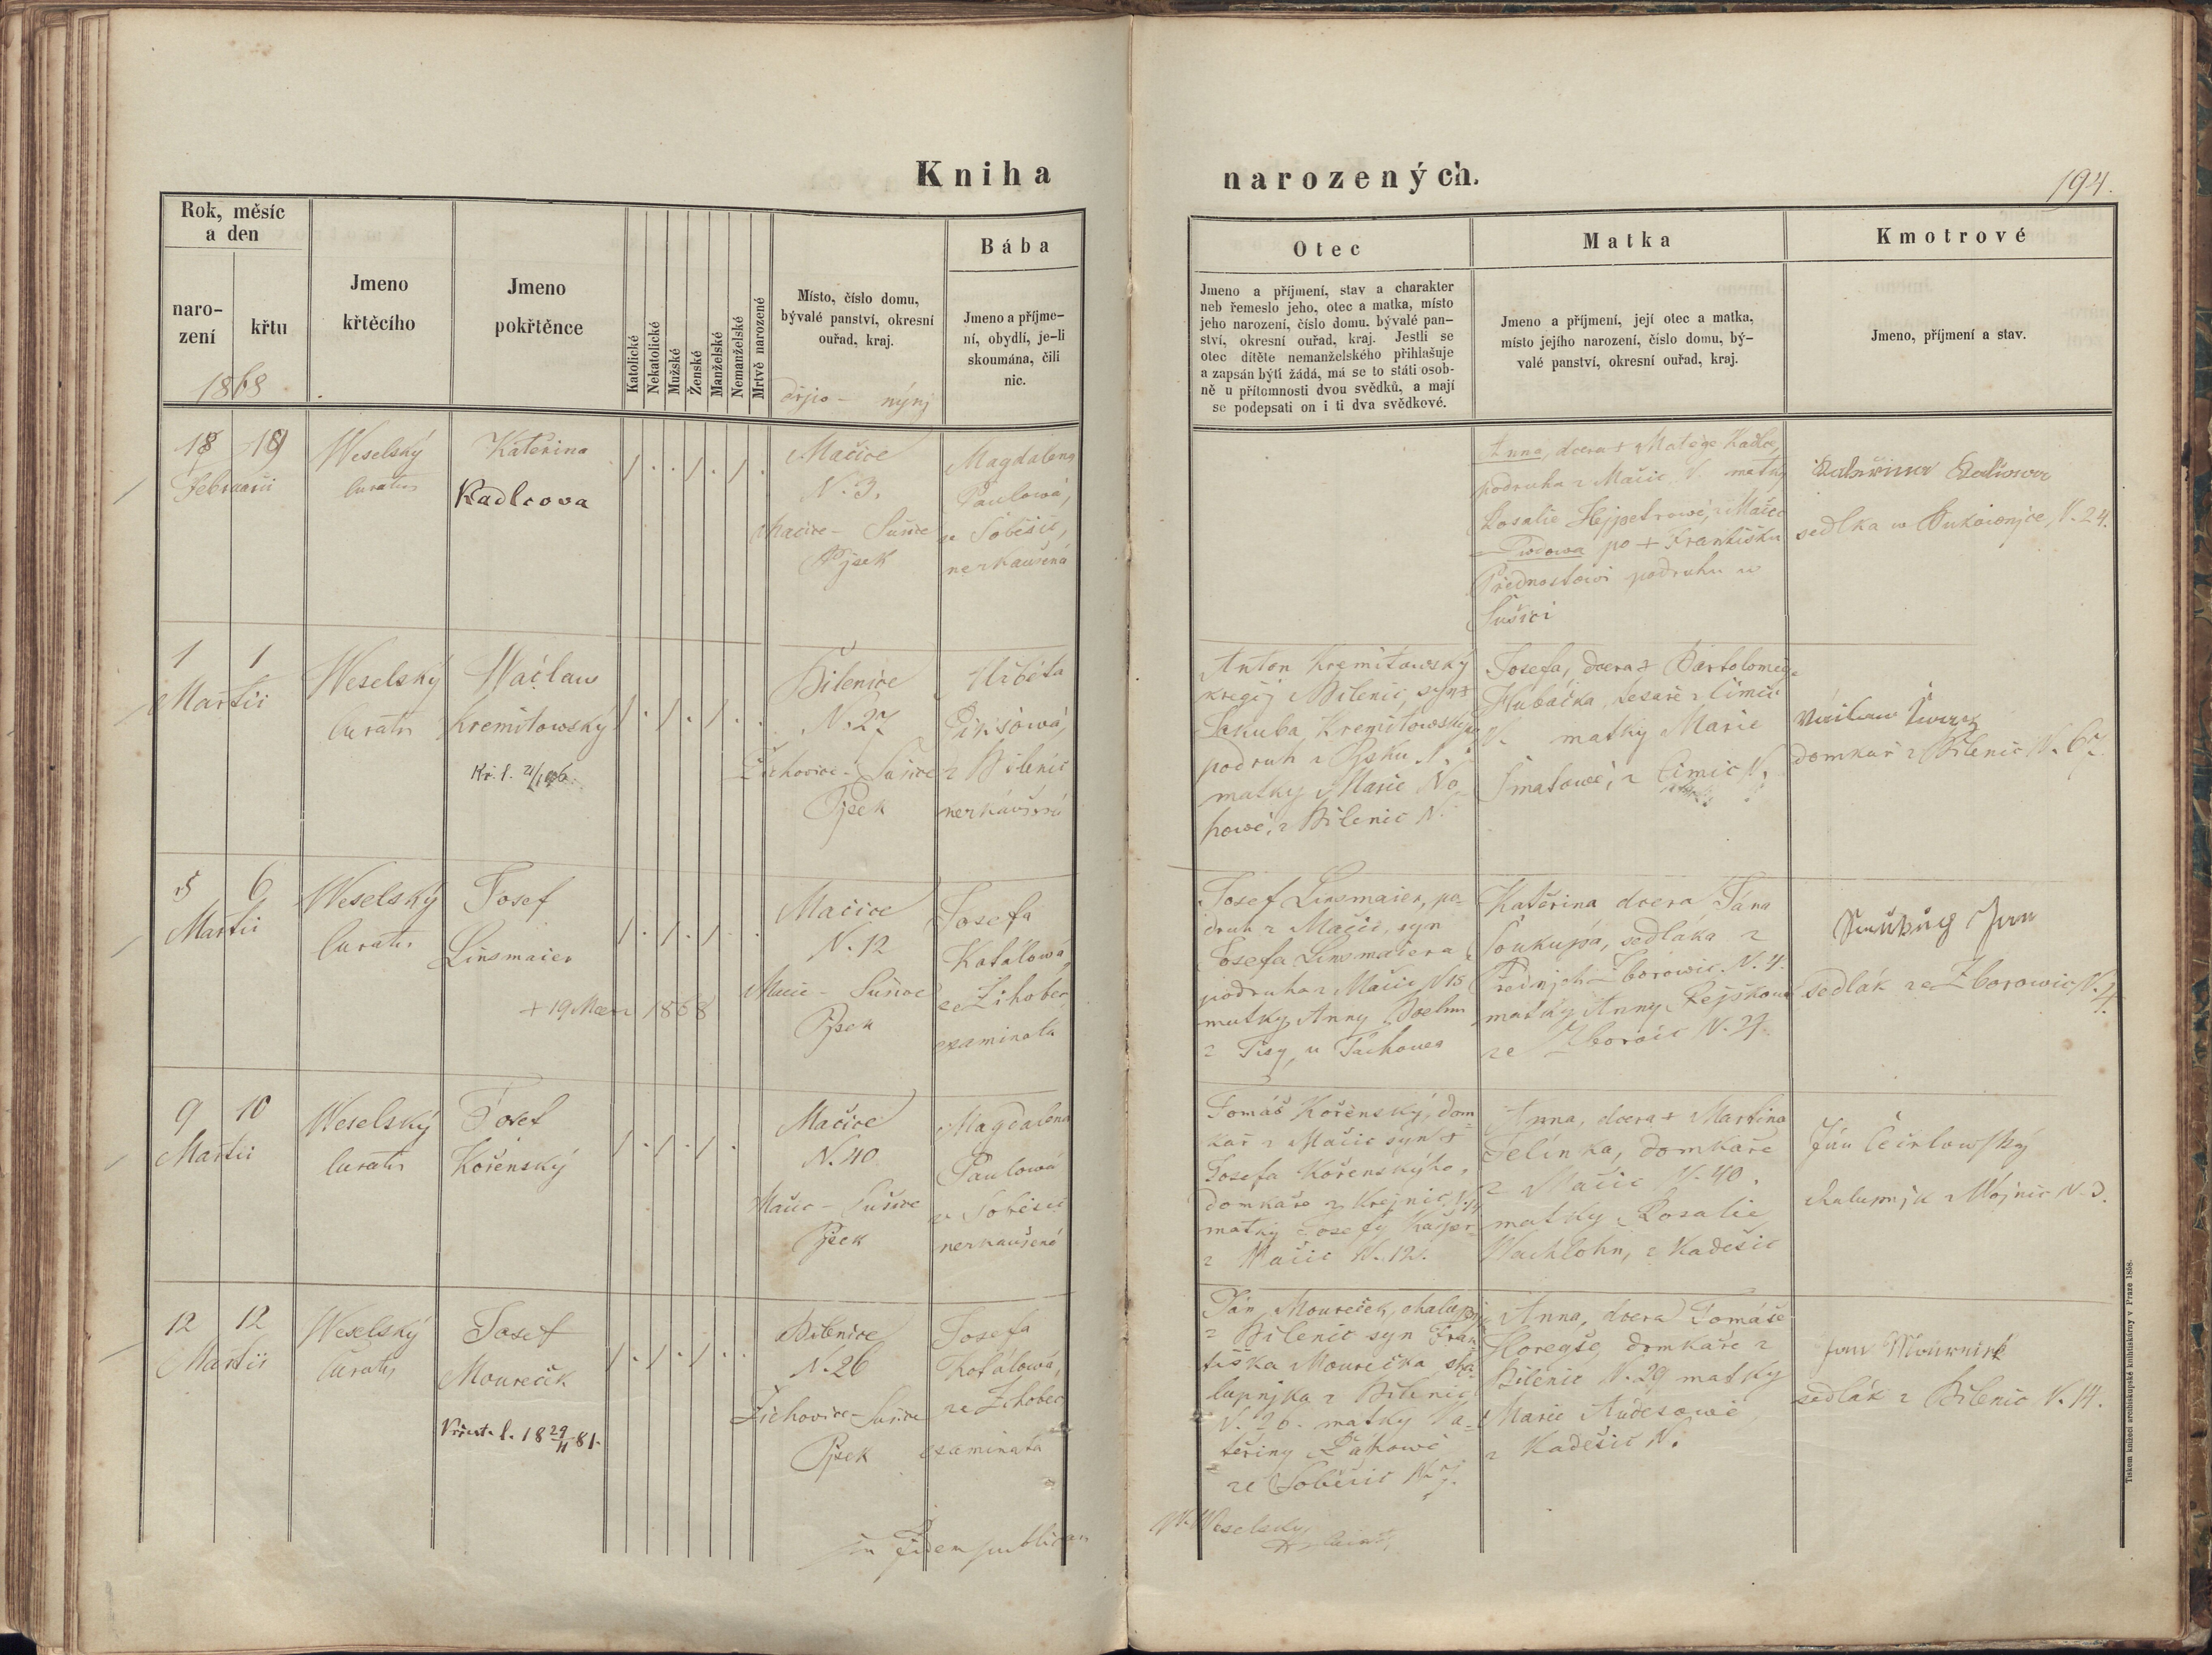 Kniha narozených.
194.
Rok, měsíc
a den
naro-
zení
křtu
1868
Jmeno
křtěcího
Jmeno
pokřtěnce
Katolické
Nekatolické
Mužské
Ženské
Manželské
Nemanželské
Mrtvě narozené
Místo, číslo domu,
bývalé panství, okresní
ouřad, kraj.
nýnj
Bába
Jmeno a příjme-
ní, obydlí, je-li
skoumána, čili
nic.
Otec
Jmeno a příjmení, stav a charakter
neb řemeslo jeho, otec a matka, místo
jeho narození, číslo domu, bývalé pan-
ství, okresní ouřad, kraj. Jestli se
otec dítěte nemanželského přihlašuje
a zapsán býti žádá, má se to státi osob-
ně u přítomnosti dvou svědků, a mají
se podepsati on i ti dva svědkové.
Matka
Jmeno a příjmení, její otec a matka,
místo jejího narození, číslo domu, bý-
valé panství, okresní ouřad, kraj.
Kmotrové
Jmeno, příjmení a stav.
18 19
Februarii
Weselský
Curatus
Kateřina
Kadlcova
Mačice
N. 3.
Mačice - Sušice
Pjsek
Magdalena
Paulowá,
ze Soběšic,
nezkaušená
Anna, dcera + Matěge Kadlce,
podruha z Mačic, N. matky
Rosalie Hejpetrowé, z Mačic
Wdowa po + Františku
Přednostowi podruhu w
Sušici
Kateřina
sedlka w N. 24.
1 1
Martii
Weselský
Curatus
Wáclaw
Kremitowský
Bilenice
N. 27
Žichovice - Sušice
Pjsek
Alžběta
z Bilenic
nezkaušená
Anton Kremitowský
kregčj z Bilenic, syn +
Jakuba Kremitowského
podruh z Pjsku N.
matky Marie No-
howé, z Bilenic N.
Josefa, dcera + Bartoloměge
Hubáčka, tesaře z Čimic
N. matky Marie
Šmatowé, z Čimic N.
domkař z Bilenic N. 67.
5 6
Martii
Weselský
Curatus
Josef
Linsmaier
+ 19 1868
Mačice
N. 12
Mačic - Sušice
Pjsek
Josefa
Kotálowá,
ze Žihobec
examinata
Josef Linsmaier, po-
druh z Mačic, syn
Josefa Linsmaiera
podruha z Mačic N 15
matky Anny
z Tisy u Tachowa
Kateřina dcera Jána
Soukupa, sedláka z
Přednjch Zborowic. N. 4.
matky Anny Řepškowé
ze Zborowic N. 29.
Soukup Jan
sedlák ze Zborowic N. 4.
9 10
Martii
Weselský
Curatus
Josef
Kořenský
Mačice
N. 40
Mačic - Sušice
Pjsek
Magdalena
Paulowá
ze Soběšic
nezkaušená
Tomáš Kořenský, dom-
kář z Mačic syn +
Josefa Kořenského,
domkáře z Krejnic,
matky Josefy Kašper
z Mačic N. 12.
Anna, dcera + Martina
Jelínka, domkaře
z Mačic N. 40.
matky Rosalie
Wachlohn, z Kadešic
Ján
chalupnjk z Wojnic N. 3.
12 12
Martii
Weselský
Curatus
Josef
Moureček
Bilenice
N. 26
Žichowice - Sušice
Pjsek
Josefa
Kotálowá,
ze Žihobec
examinata
Ján Moureček, chalupnjk
z Bilenic syn Fran-
tiška Mourečka, cha-
lupnjka z Bilenic
N. 26. matky Ka-
teřiny
ze Soběšic N. 7.
Anna, dcera Tomáše
Koregše, domkaře z
Bilenic N. 29 matky
Marie
z Kadešic N.
Jan Moureček
sedlák z Bilenic N. 14.
in fidem publicam
Weselský
Tiskem knížecí arcibiskupské knihtiskárny v Praze 1858.